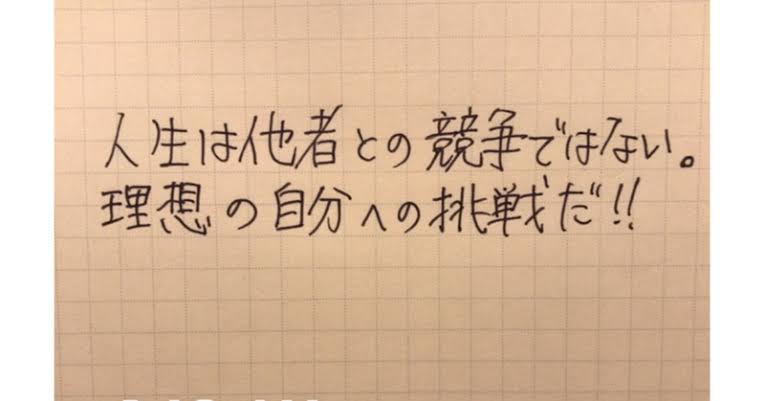 人生は他者との競争ではない。
理想の自分への挑戦だ!!